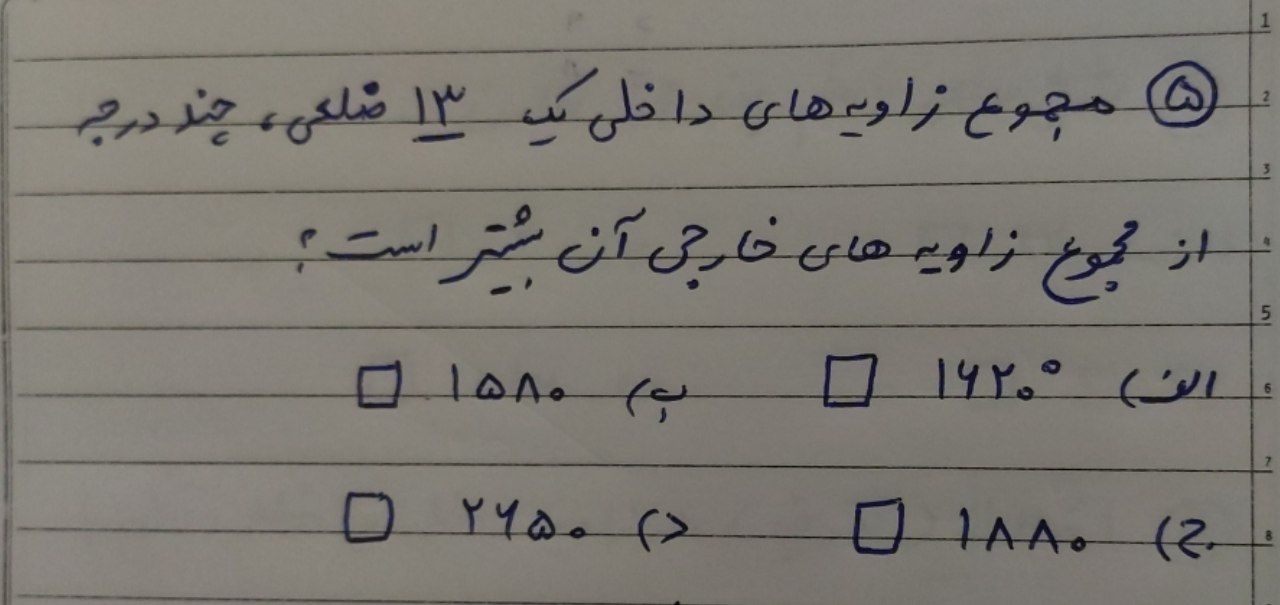 ۵ مجموع زاویه های داخلی یک ۱۳ ضلعی، چند درجه
از مجموع زاویه های خارجی آن بیشتر است؟
الف) ۱۶۲۰° ب) ۱۵۸۰
ج) ۱۸۸۰ د) ۲۶۵۰
1
2
3
4
5
6
7
8